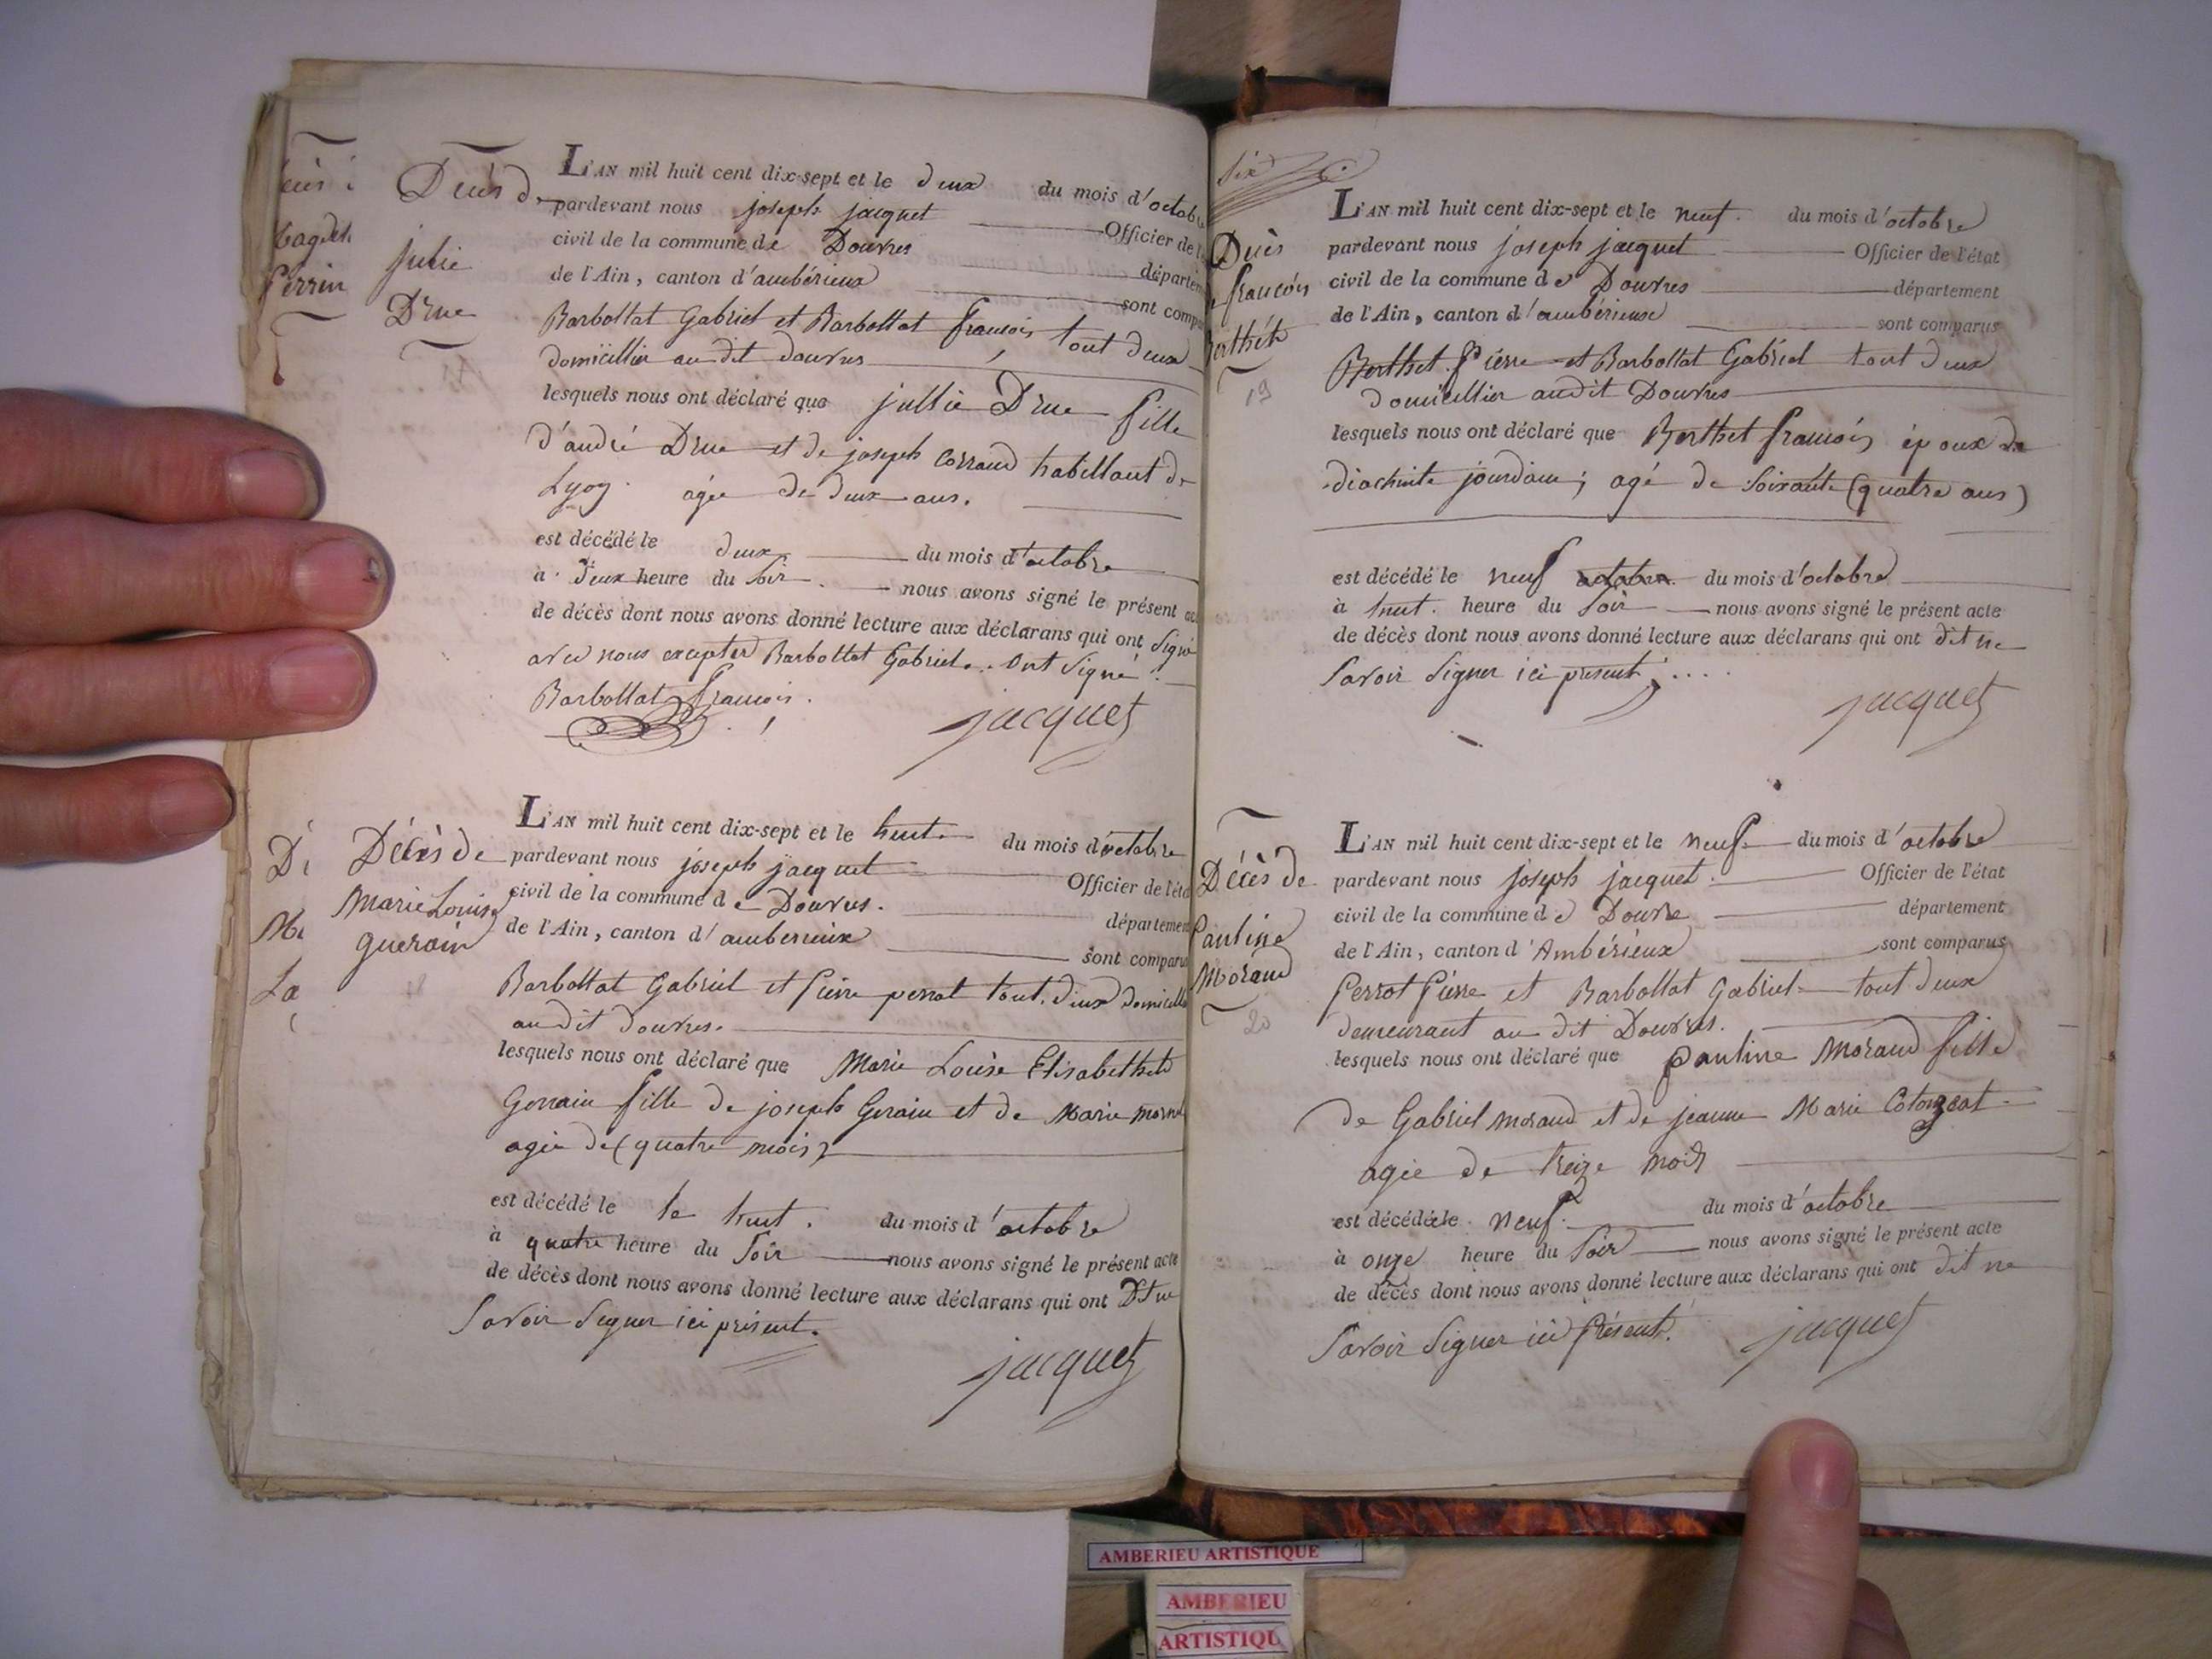 Perrin
Decès de
julie
Drue
L'AN mil huit cent dix-sept et le deux du mois d'octobre
pardevant nous joseph jacquet Officier de l'
civil de la commune de Douvres départem
de l'Ain, canton d'ambérieux sont compa
Barbollat Gabriel et Barbollat francois tout deux
domicillier au dit douvres
lesquels nous ont déclaré que jullie Drue fille
d'andré Drue et de joseph Corraud habittant de
Lyon agée de deux ans.
est décédé le deux du mois d'octobre
à deux heure du soir nous avons signé le présent ac
de décès dont nous avons donné lecture aux déclarans qui ont signé
avec nous excepter Barbollat Gabriel. ont signé
Barbollat francois.
jacquet
Dé
Ma
La
Décès de
Marie Louise
guerain
L'AN mil huit cent dix-sept et le huit du mois d'octobre
pardevant nous joseph jacquet Officier de l'éta
civil de la commune de Douvres. départemen
de l'Ain, canton d'amberieux sont comparus
Barbollat Gabriel et Pierre perrot tout deux domicille
au dit douvres.
lesquels nous ont déclaré que Marie Louise Elisabethete
Gerrain fille de joseph Gerain et de Marie
agée de (quatre mois)
est décédé le le huit. du mois d'octobre
à quatre heure du soir nous avons signé le présent acte
de décès dont nous avons donné lecture aux déclarans qui ont Dit ne
Savoir Signer ici présent.
jacquet
Six
Decès
de francois
Berthet
19
L'AN mil huit cent dix-sept et le neuf. du mois d'octobre
pardevant nous joseph jacquet Officier de l'état
civil de la commune de Douvres département
de l'Ain, canton d'ambérieux sont comparus
Berthet Pierre et Barbollat Gabriel tout deux
domicillier audit Douvres
lesquels nous ont déclaré que Berthet francois époux de
diachinte jourdain; agé de soixante (quatre ans)
est décédé le neuf octobre du mois d'octobre
à huit. heure du soir nous avons signé le présent acte
de décès dont nous avons donné lecture aux déclarans qui ont dit ne
Savoir Signer ici présent
jacquet
Décès de
Pauline
Moraud
20
L'AN mil huit cent dix-sept et le neuf. du mois d'octobre
pardevant nous joseph jacquet. Officier de l'état
civil de la commune de Douvre département
de l'Ain, canton d'Ambérieux sont comparus
Perrot Pierre et Barbollat Gabriel tout deux
demeurant au dit Douvres.
lesquels nous ont déclaré que pauline Moraud fille
de Gabriel moraud et de jeanne Marie
agée de treize mois
est décédée le neuf. du mois d'octobre
à onze heure du soir nous avons signé le présent acte
de décès dont nous avons donné lecture aux déclarans qui ont dit ne
Savoir Signer ici Présent.
jacquet
AMBERIEU ARTISTIQUE
AMBERIEU
ARTISTIQU